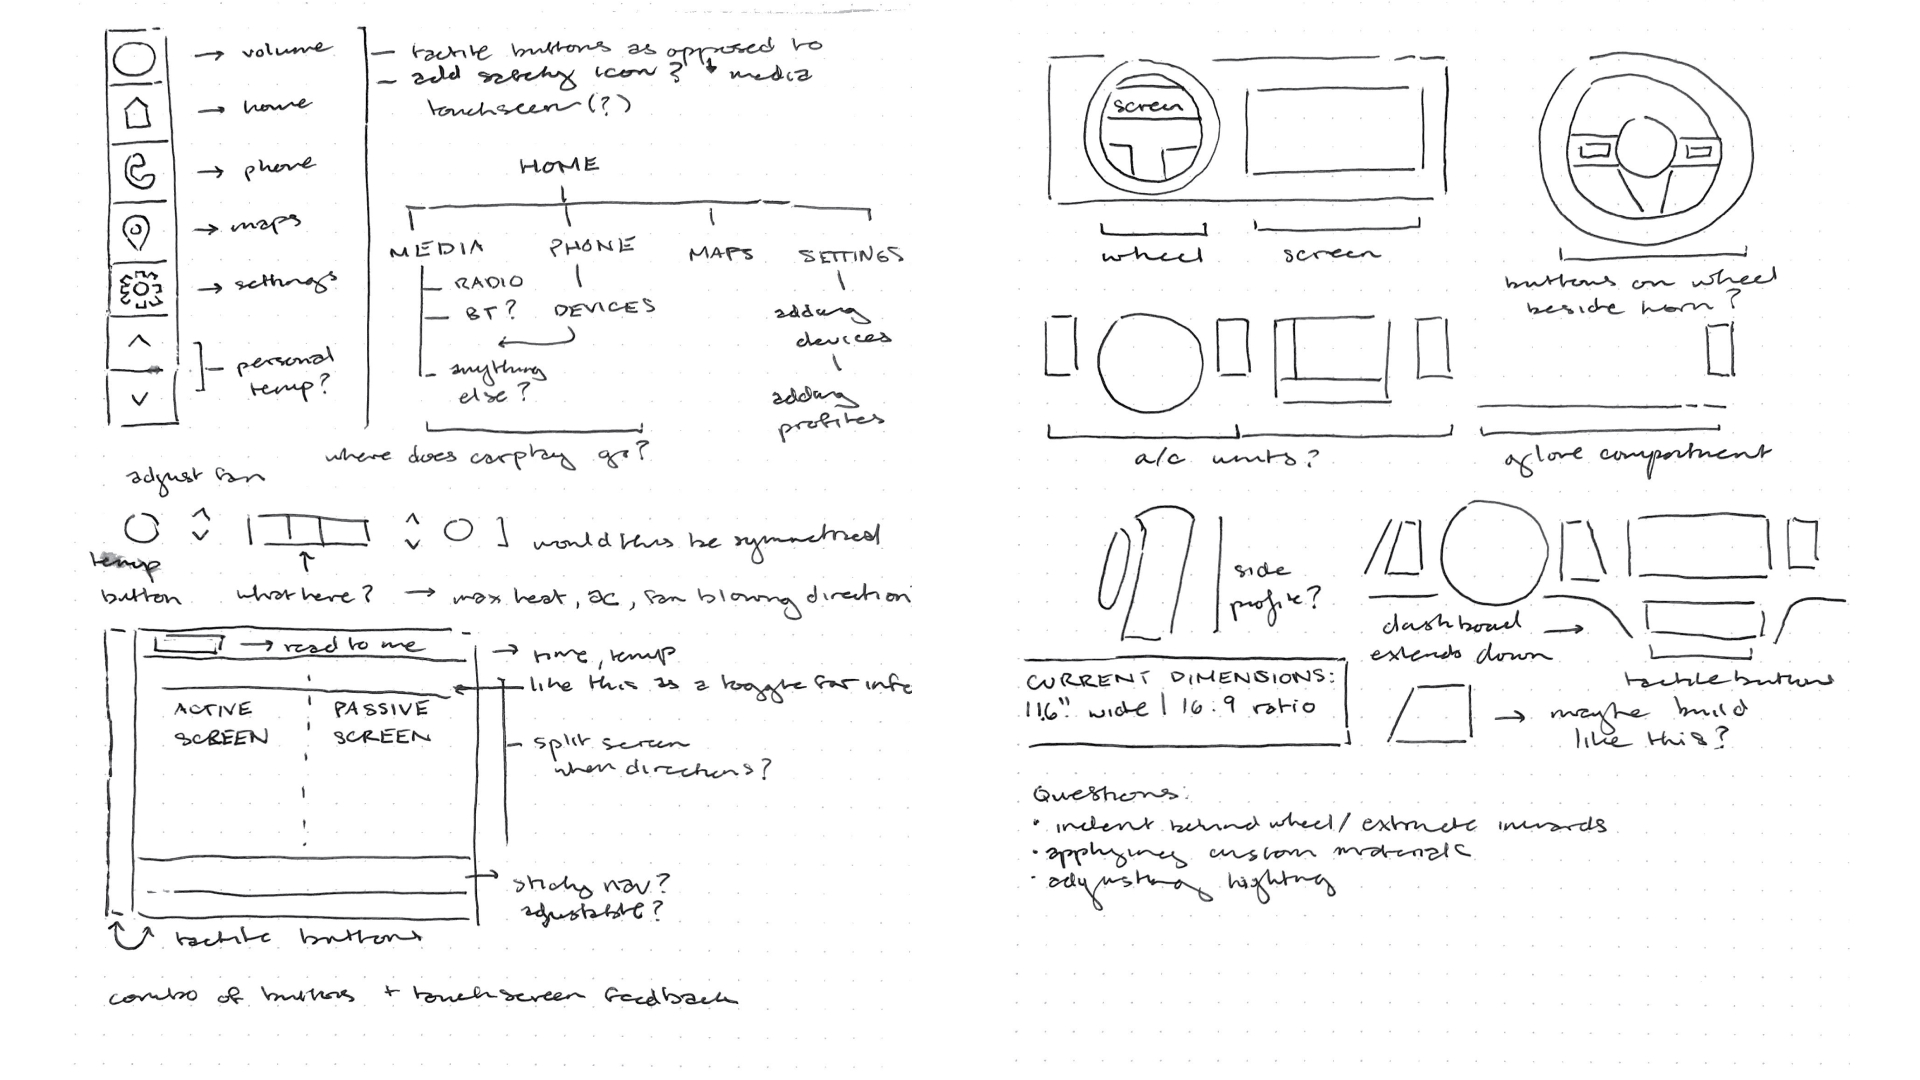 → volume
→ home
→ phone
→ maps
→ settings
personal
temp?
– tactile buttons as opposed to
– add safety icon? media
touchscreen (?)
HOME
MEDIA PHONE MAPS SETTINGS
– RADIO
– BT? DEVICES
– anything
else?
adding
devices
adding
profiles
where does carplay go?
adjust fan
temp
button
what here? → max heat, ac, fan blowing direction
] would this be symmetrical
→ read to me
→ time, temp
like this as a toggle for info
ACTIVE
SCREEN
PASSIVE
SCREEN
– split screen
when directions?
→ sticky nav?
adjustable?
tactile buttons
combo of buttons + touchscreen feedback
screen
wheel screen
buttons on wheel
beside horn?
a/c units?
glove compartment
side
profile?
dashboard →
extends down
tactile buttons
CURRENT DIMENSIONS:
11.6" wide | 16.9 ratio
→ maybe build
like this?
Questions:
· indent behind wheel / extrude inwards
· applying custom materials
· adjusting lighting